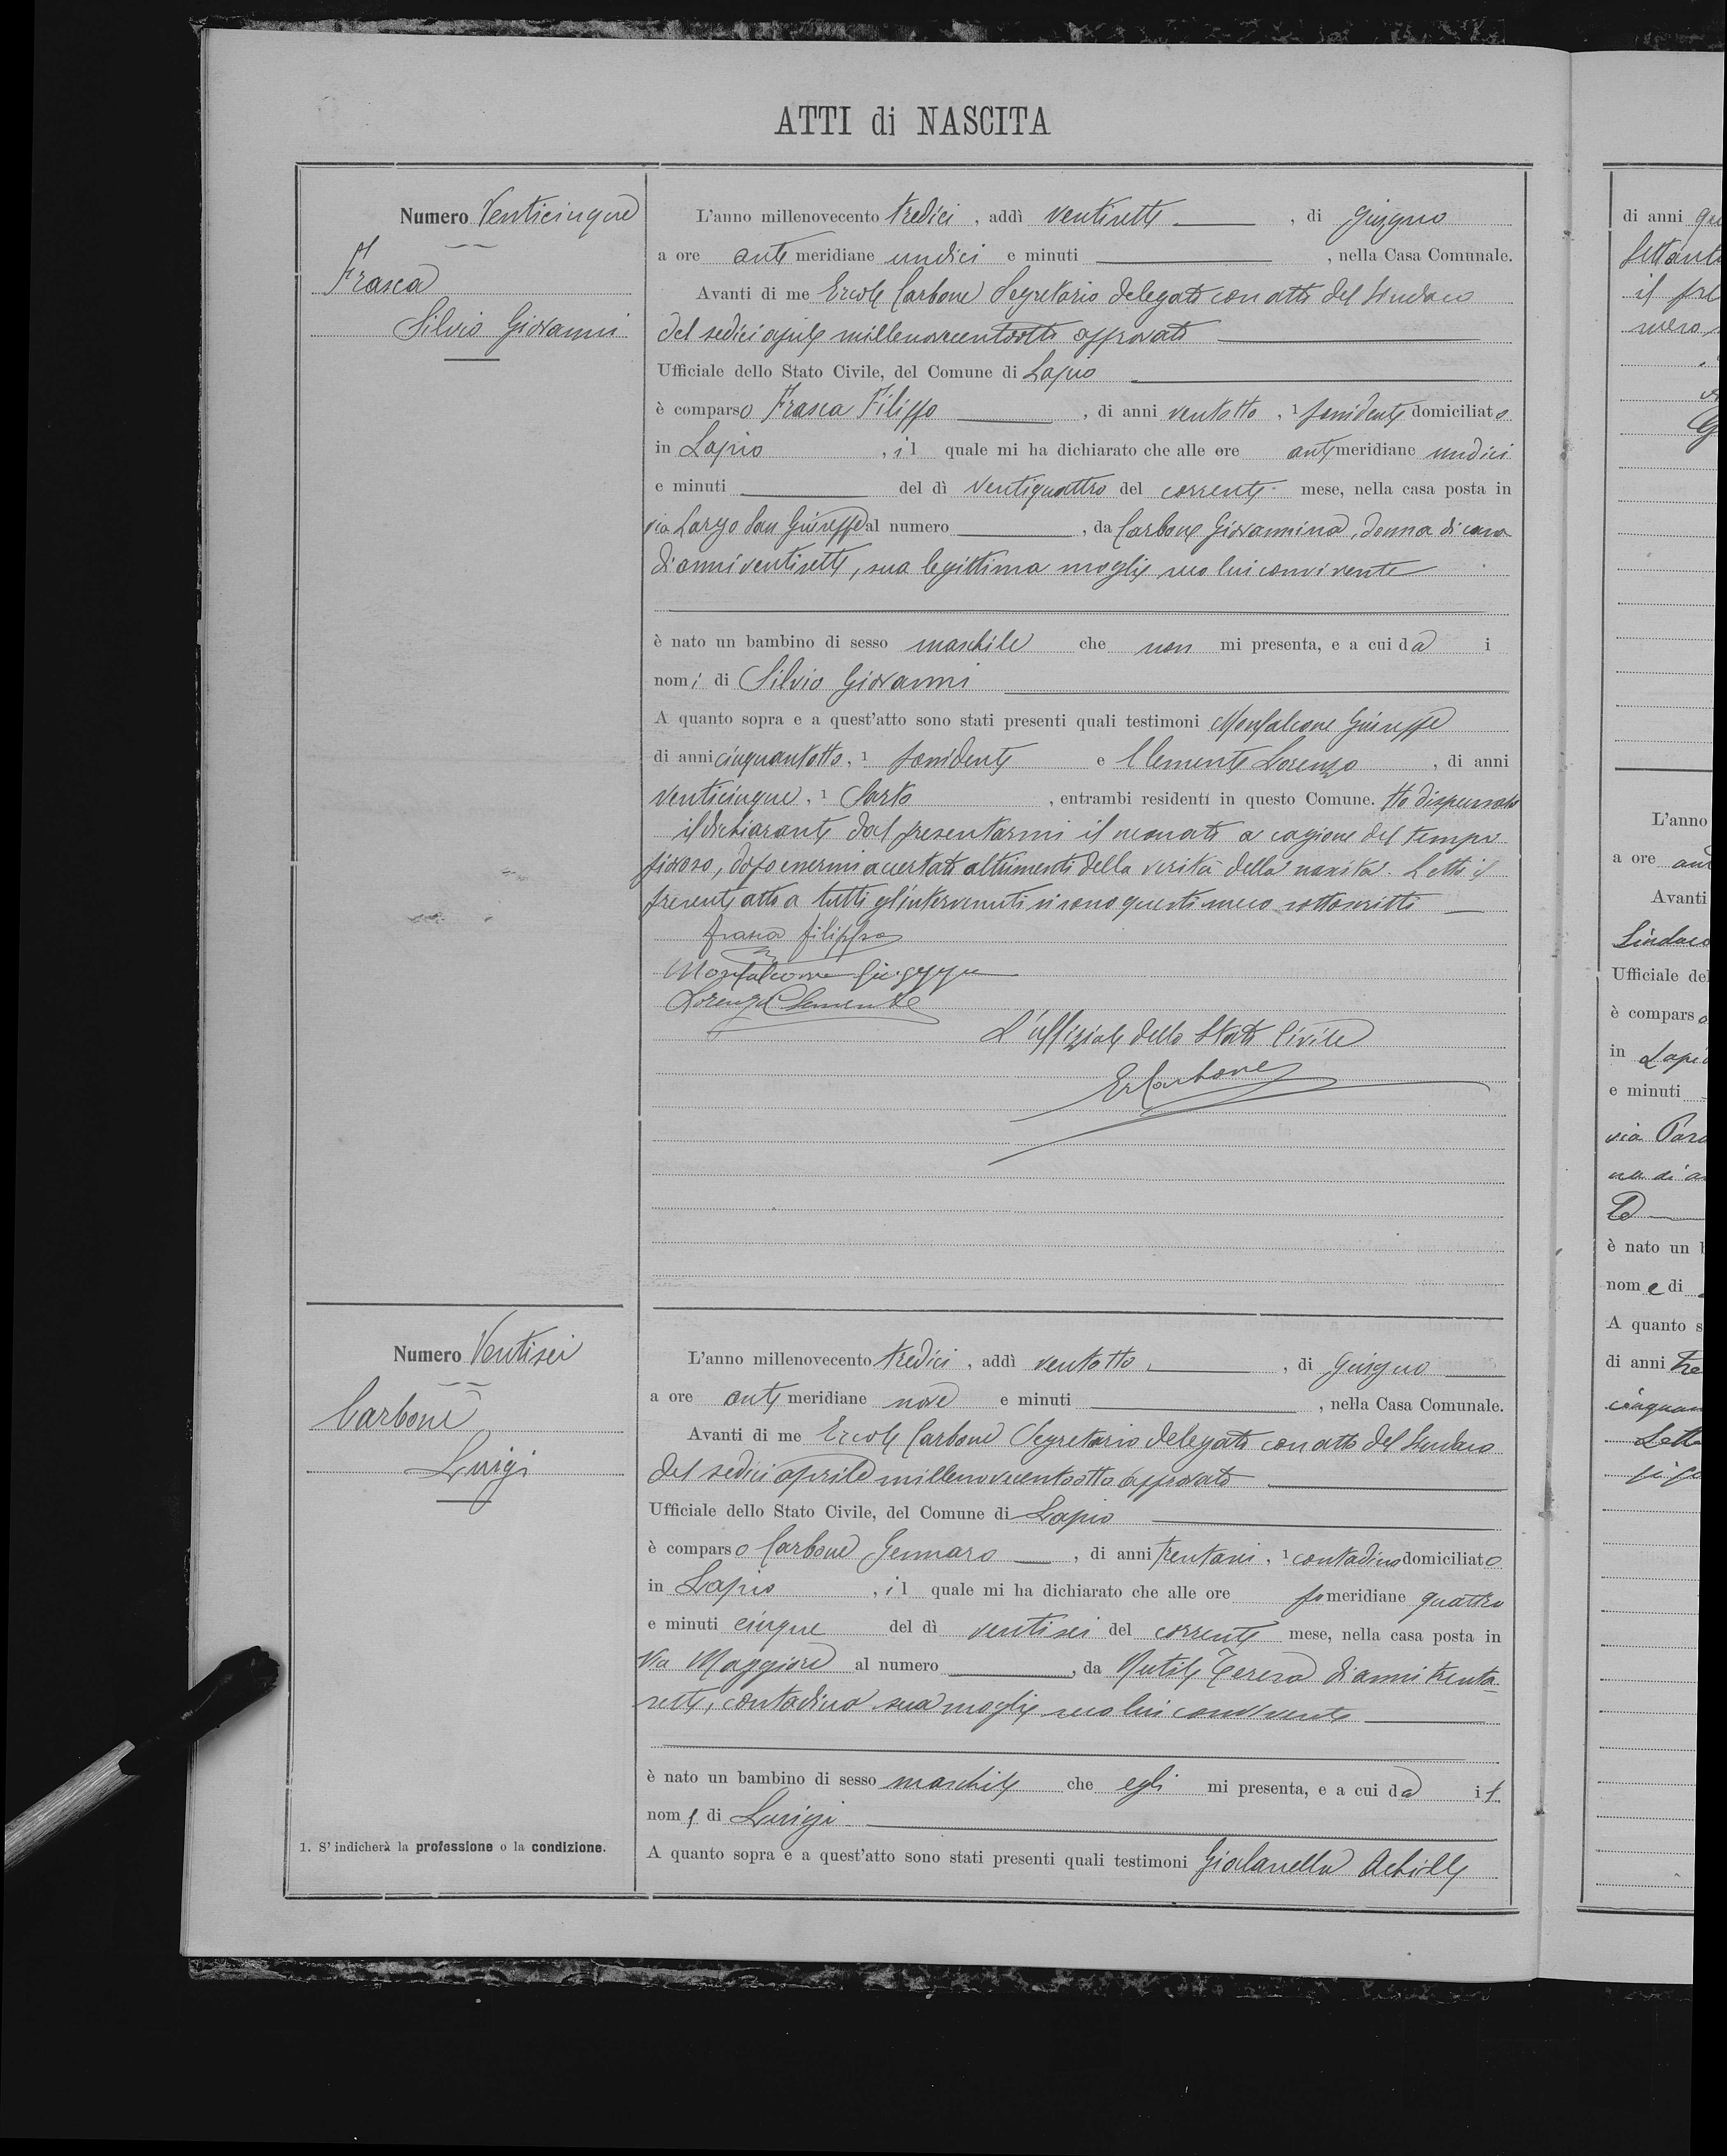 ATTI di NASCITA
Numero Venticinque
Frasca
Silvio Giovanni
L'anno millenovecento tredici, addì ventisette, di Giugno
a ore antimeridiane undici e minuti , nella Casa Comunale.
Avanti di me Ercole Carbone Segretario delegato con atto del Sindaco
del sedici aprile millenovecentootto approvato
Ufficiale dello Stato Civile, del Comune di Lapio
è comparso Frasca Filippo , di anni ventotto, 1 possidente domiciliato
in Lapio , il quale mi ha dichiarato che alle ore antimeridiane undici
e minuti del dì ventiquattro del corrente mese, nella casa posta in
via Largo San Giuseppe al numero , da Carbone Giovannina, donna di casa
di anni ventisette, sua legittima moglie seco lui convivente
è nato un bambino di sesso maschile che non mi presenta, e a cui dà i
nomi di Silvio Giovanni
A quanto sopra e a quest'atto sono stati presenti quali testimoni Monfalcone Giuseppe
di anni cinquantotto, 1 possidente e Clemente Lorenzo , di anni
venticinque, 1 Sarto , entrambi residenti in questo Comune. Ho dispensato
il dichiarante dal presentarmi il neonato a cagione del tempo
piovoso, dopo essermi accertato altrimenti della verità della nascita. Letto il
presente atto a tutti gl'intervenuti si sono questi meco sottoscritti
Frasca Filippo
Monfalcone Giuseppe
Lorenzo Clemente
L'uffiziale dello Stato Civile
E. Carbone
Numero Ventisei
Carbone
Luigi
L'anno millenovecento tredici, addì ventotto, di Giugno
a ore antimeridiane nove e minuti , nella Casa Comunale.
Avanti di me Ercole Carbone Segretario delegato con atto del Sindaco
del sedici aprile millenovecentootto approvato
Ufficiale dello Stato Civile, del Comune di Lapio
è comparso Carbone Gennaro , di anni trentasei, 1 contadino domiciliato
in Lapio , il quale mi ha dichiarato che alle ore pomeridiane quattro
e minuti cinque del dì ventisei del corrente mese, nella casa posta in
Via Maggiore al numero , da Nutile Teresa di anni trenta
sette, contadina sua moglie seco lui convivente
è nato un bambino di sesso maschile che egli mi presenta, e a cui dà il
nome di Luigi
A quanto sopra e a quest'atto sono stati presenti quali testimoni Giolanella Achille
1. S'indicherà la professione o la condizione.
di anni
il pre
L'anno
a ore
Avanti
Sindaco
Ufficiale del
è comparso
in Lapio
e minuti
via
è nato un
nome di
A quanto s
di anni